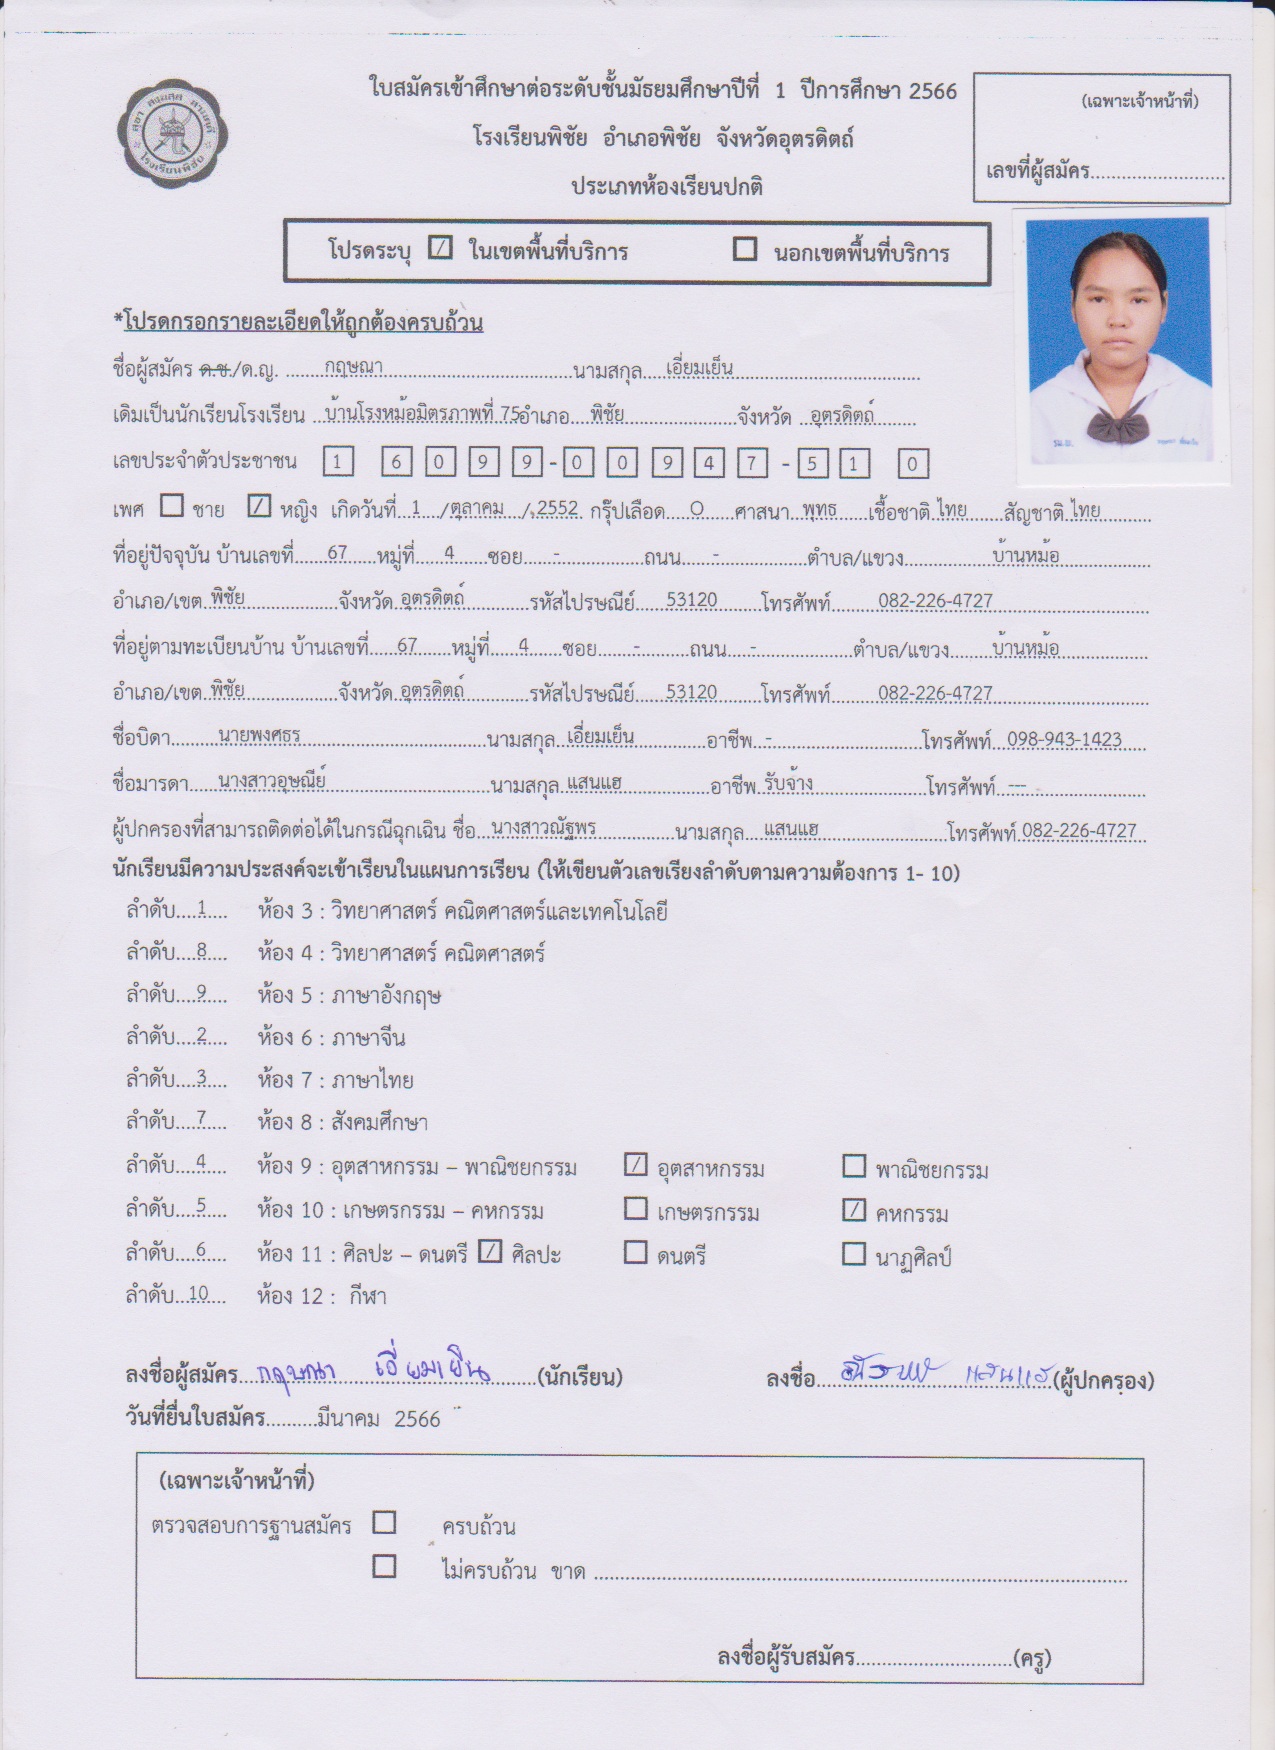 ใบสมัครเข้าศึกษาต่อระดับชั้นมัธยมศึกษาปีที่ 1 ปีการศึกษา 2566
(เฉพาะเจ้าหน้าที่)
โรงเรียนพิชัย อำเภอพิชัย จังหวัดอุตรดิตถ์
เลขที่ผู้สมัคร........................
ประเภทห้องเรียนปกติ
โรงเรียนพิชัย
โปรดระบุ ☑ ในเขตพื้นที่บริการ ☐ นอกเขตพื้นที่บริการ
*โปรดกรอกรายละเอียดให้ถูกต้องครบถ้วน
ชื่อผู้สมัคร ด.ช./ด.ญ. กฤษณา นามสกุล เอี่ยมเย็น
เดิมเป็นนักเรียนโรงเรียน บ้านโรงหม้อมิตรภาพที่ 75 อำเภอ พิชัย จังหวัด อุตรดิตถ์
เลขประจำตัวประชาชน 1 6 0 9 9 - 0 0 9 4 7 - 5 1 0
เพศ ☐ ชาย ☑ หญิง เกิดวันที่ 1 / ตุลาคม / 2552 กรุ๊ปเลือด O ศาสนา พุทธ เชื้อชาติ ไทย สัญชาติ ไทย
ที่อยู่ปัจจุบัน บ้านเลขที่ 67 หมู่ที่ 4 ซอย - ถนน - ตำบล/แขวง บ้านหม้อ
อำเภอ/เขต พิชัย จังหวัด อุตรดิตถ์ รหัสไปรษณีย์ 53120 โทรศัพท์ 082-226-4727
ที่อยู่ตามทะเบียนบ้าน บ้านเลขที่ 67 หมู่ที่ 4 ซอย - ถนน - ตำบล/แขวง บ้านหม้อ
อำเภอ/เขต พิชัย จังหวัด อุตรดิตถ์ รหัสไปรษณีย์ 53120 โทรศัพท์ 082-226-4727
ชื่อบิดา นายพงศธร นามสกุล เอี่ยมเย็น อาชีพ - โทรศัพท์ 098-943-1423
ชื่อมารดา นางสาวอุษณีย์ นามสกุล แสนแฮ อาชีพ รับจ้าง โทรศัพท์ ---
ผู้ปกครองที่สามารถติดต่อได้ในกรณีฉุกเฉิน ชื่อ นางสาวณัฐพร นามสกุล แสนแฮ โทรศัพท์ 082-226-4727
นักเรียนมีความประสงค์จะเข้าเรียนในแผนการเรียน (ให้เขียนตัวเลขเรียงลำดับตามความต้องการ 1- 10)
ลำดับ 1 ห้อง 3 : วิทยาศาสตร์ คณิตศาสตร์และเทคโนโลยี
ลำดับ 8 ห้อง 4 : วิทยาศาสตร์ คณิตศาสตร์
ลำดับ 9 ห้อง 5 : ภาษาอังกฤษ
ลำดับ 2 ห้อง 6 : ภาษาจีน
ลำดับ 3 ห้อง 7 : ภาษาไทย
ลำดับ 7 ห้อง 8 : สังคมศึกษา
ลำดับ 4 ห้อง 9 : อุตสาหกรรม – พาณิชยกรรม ☑ อุตสาหกรรม ☐ พาณิชยกรรม
ลำดับ 5 ห้อง 10 : เกษตรกรรม – คหกรรม ☐ เกษตรกรรม ☑ คหกรรม
ลำดับ 6 ห้อง 11 : ศิลปะ – ดนตรี ☑ ศิลปะ ☐ ดนตรี ☐ นาฏศิลป์
ลำดับ 10 ห้อง 12 : กีฬา
ลงชื่อผู้สมัคร กฤษณา เอี่ยมเย็น (นักเรียน) ลงชื่อ ณัฐพร แสนแฮ (ผู้ปกครอง)
วันที่ยื่นใบสมัคร..........มีนาคม 2566
(เฉพาะเจ้าหน้าที่)
ตรวจสอบการฐานสมัคร ☐ ครบถ้วน
☐ ไม่ครบถ้วน ขาด ........................
ลงชื่อผู้รับสมัคร..............................(ครู)